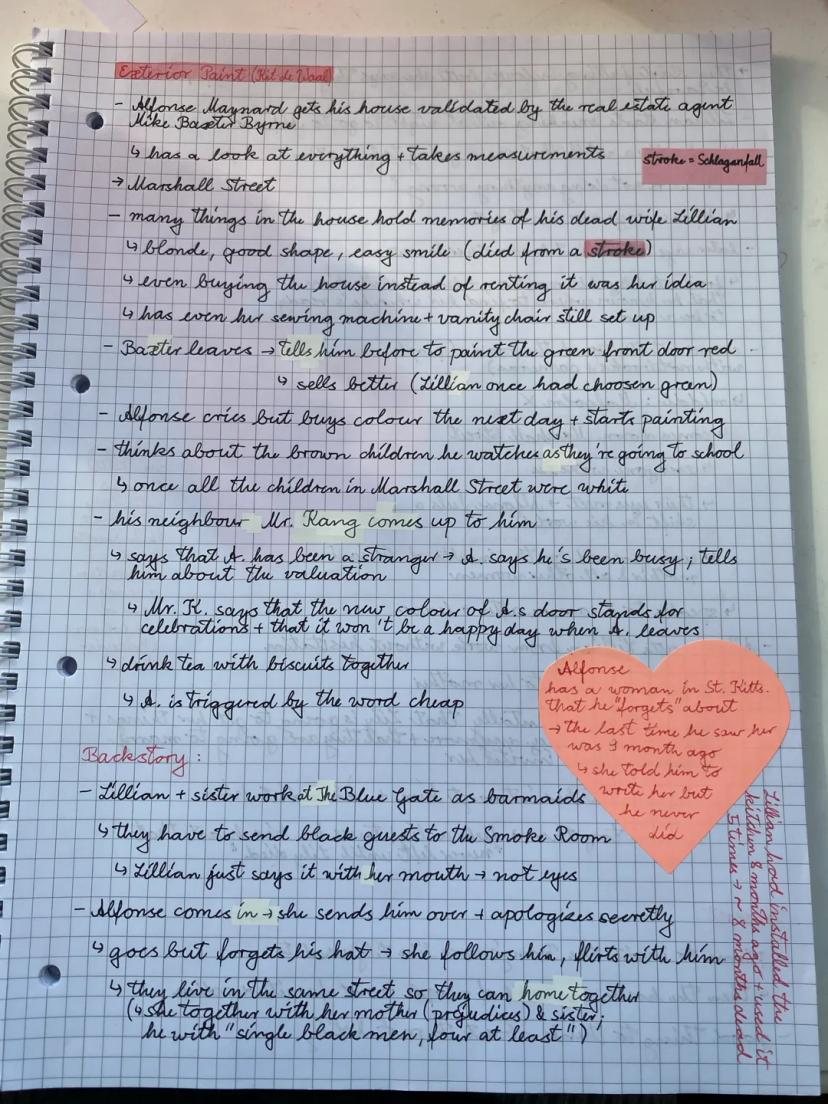 Exterior Paint (Kit de Waal)
- Alfonse Maynard gets his house validated by the real estate agent
Mike Baxter Byrne
↳ has a look at everything + takes measurements
stroke = Schlaganfall
→ Marshall Street
- many things in the house hold memories of his dead wife Lillian
↳ blonde, good shape, easy smile (died from a stroke)
↳ even buying the house instead of renting it was her idea
↳ has even her sewing machine + vanity chair still set up
- Baxter leaves → tells him before to paint the green front door red
↳ sells better (Lillian once had choosen green)
- Alfonse cries but buys colour the next day + starts painting
- thinks about the brown children he watches as they're going to school
↳ once all the children in Marshall Street were white
- his neighbour Mr. Kang comes up to him
↳ says that A. has been a stranger → A. says he's been busy; tells
him about the valuation
↳ Mr. K. says that the new colour of A.s door stands for
celebrations + that it won't be a happy day when A. leaves
↳ drink tea with biscuits together
↳ A. is triggered by the word cheap
Alfonse
has a woman in St. Kitts.
that he "forgets" about
→ the last time he saw her
was 3 month ago
↳ she told him to
write her but
he never
did
Backstory:
- Lillian + sister work at The Blue Gate as barmaids
↳ they have to send black guests to the Smoke Room
↳ Lillian just says it with her mouth → not eyes
- Alfonse comes in → she sends him over + apologizes secretly
↳ goes but forgets his hat → she follows him, flirts with him
↳ they live in the same street so they can home together
(↳ she together with her mother (prejudices) & sister;
he with "single black men, four at least")
Lillian had installed the
kitchen 8 months ago + used it
5 times → ~ 8 months dead